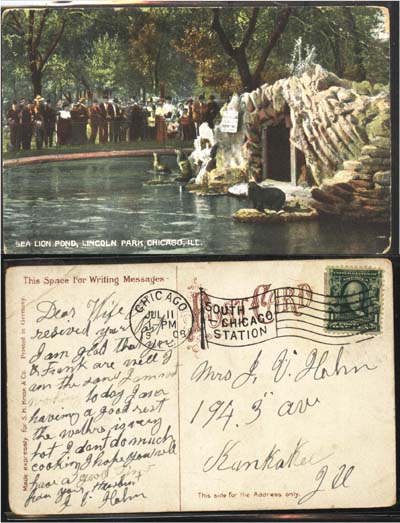 SEA LION POND, LINCOLN PARK, CHICAGO, ILL.
This Space For Writing Messages
Printed in Germany.
Made expressly for S. H. Knox & Co.
Dear Wife
I
recieved your
I am glad that
& Frank are well I
am the same I am
working today I am
having a good rest
the wether is very
hot I dont do much
cooking I hope you will
have a good time
from your Husban
J V Hahn
POST CARD
CHICAGO
JUL 11
PM
SOUTH
CHICAGO
STATION
Mrs J. V. Hahn
194. 5 av
Kankakee
Ill
This side for the Address only.